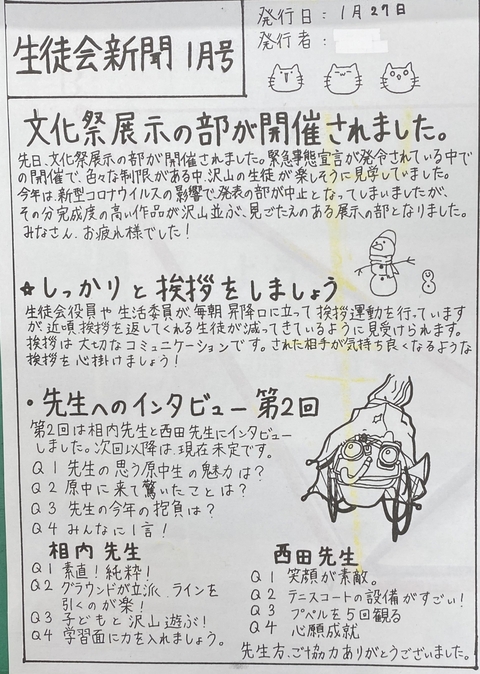 生徒会新聞 1月号
発行日：1月27日
発行者：
文化祭展示の部が開催されました。
先日、文化祭展示の部が開催されました。緊急事態宣言が発令されている中で
の開催で、色々な制限がある中、沢山の生徒が楽しそうに見学していました。
今年は、新型コロナウイルスの影響で、発表の部が中止となってしまいましたが、
その分完成度の高い作品が沢山並ぶ、見ごたえのある展示の部となりました。
みなさん、お疲れ様でした！
☆しっかりと挨拶をしましょう
生徒会役員や生活委員が毎朝昇降口に立って挨拶運動を行っています
が、近頃挨拶を返してくれる生徒が減ってきているように見受けられます。
挨拶は大切なコミュニケーションです。された相手が気持ち良くなるような
挨拶を心掛けましょう！
・先生へのインタビュー 第2回
第2回は相内先生と西田先生にインタビュー
しました。次回以降は、現在未定です。
Q1 先生の思う原中生の魅力は？
Q2 原中に来て驚いたことは？
Q3 先生の今年の抱負は？
Q4 みんなに1言！
相内先生
Q1 素直！純粋！
Q2 グラウンドが立派、ラインを
引くのが楽！
Q3 子どもと沢山遊ぶ！
Q4 学習面に力を入れましょう。
西田先生
Q1 笑顔が素敵。
Q2 テニスコートの設備がすごい！
Q3 プペルを5回観る
Q4 心願成就
先生方、ご協力ありがとうございました。